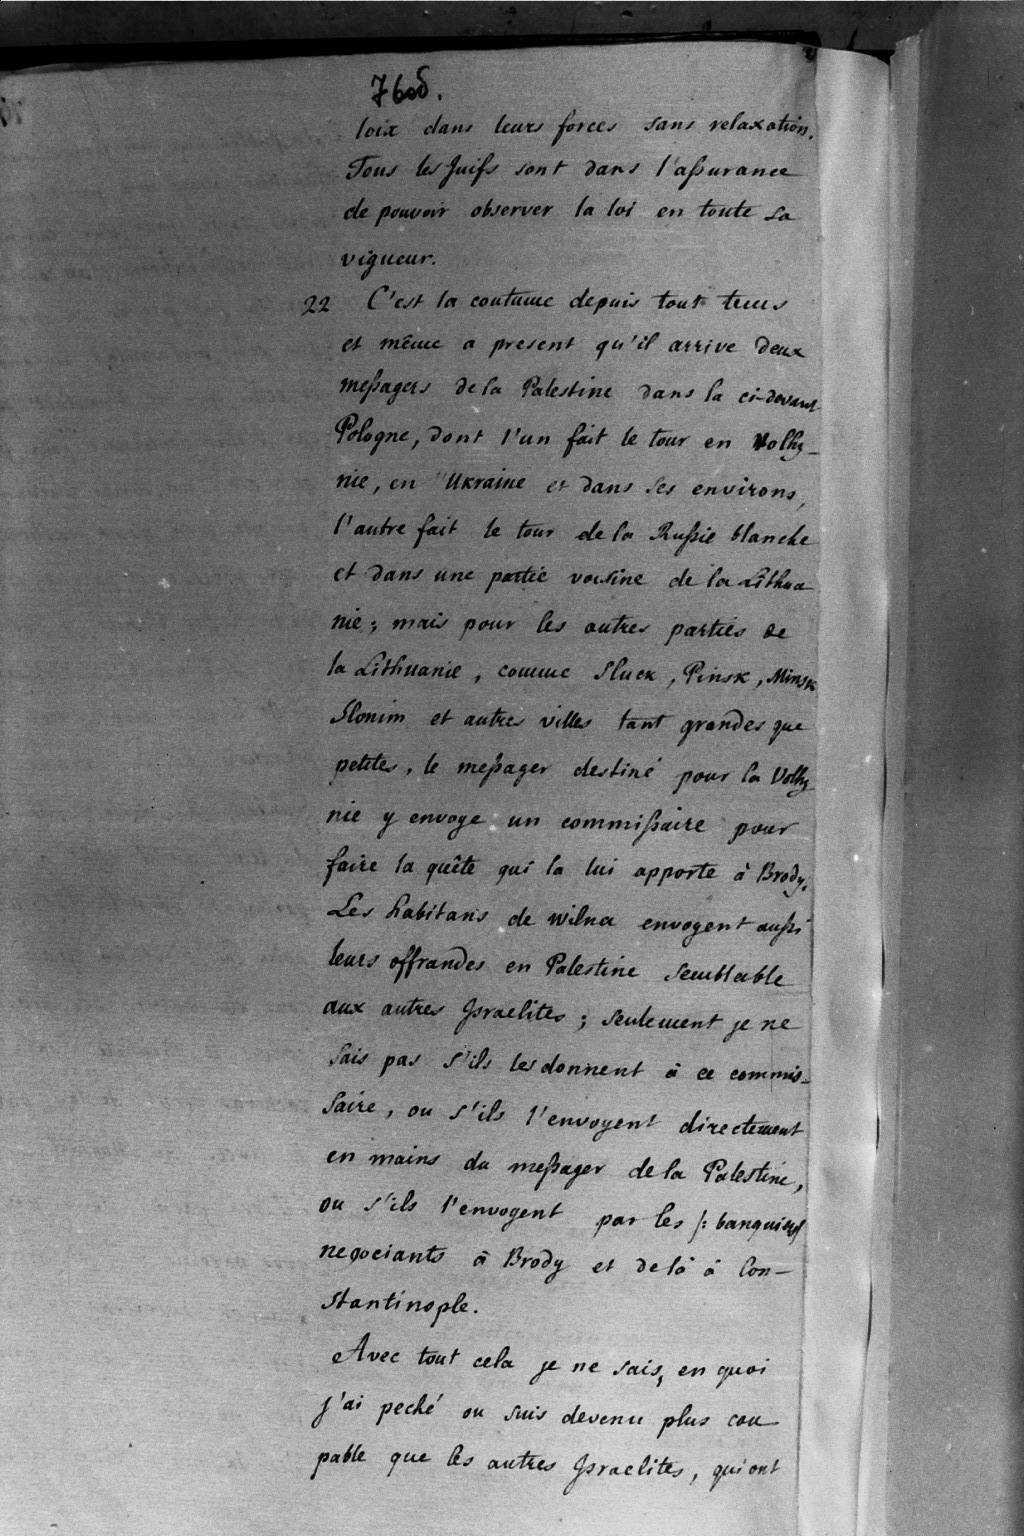 760б.
loix dans leurs forces sans relaxation.
Tous les Juifs sont dans l'assurance
de pouvoir observer la loi en toute sa
vigueur.
22 C'est la coutume depuis tout tems
et même a present qu'il arrive deux
messagers de la Palestine dans la ci-devant
Pologne, dont l'un fait le tour en Volhy-
nie, en Ukraine et dans ses environs,
l'autre fait le tour de la Russie blanche
et dans une partie voisine de la Lithua
nie; mais pour les autres parties de
la Lithuanie, comme Sluck, Pinsk, Minsk
Slonim et autres villes tant grandes que
petites, le messager destiné pour la Volhy
nie y envoye un commissaire pour
faire la quête qui la lui apporte à Brody.
Les habitans de Wilna envoyent aussi
leurs offrandes en Palestine semblable
aux autres Israelites; seulement je ne
sais pas s'ils les donnent à ce commis-
saire, ou s'ils l'envoyent directement
en mains du messager de la Palestine,
ou s'ils l'envoyent par les /: banquiers
negociants à Brody et de là à Con-
stantinople.
Avec tout cela je ne sais, en quoi
j'ai peché ou suis devenu plus cou
pable que les autres Israelites, qui ont